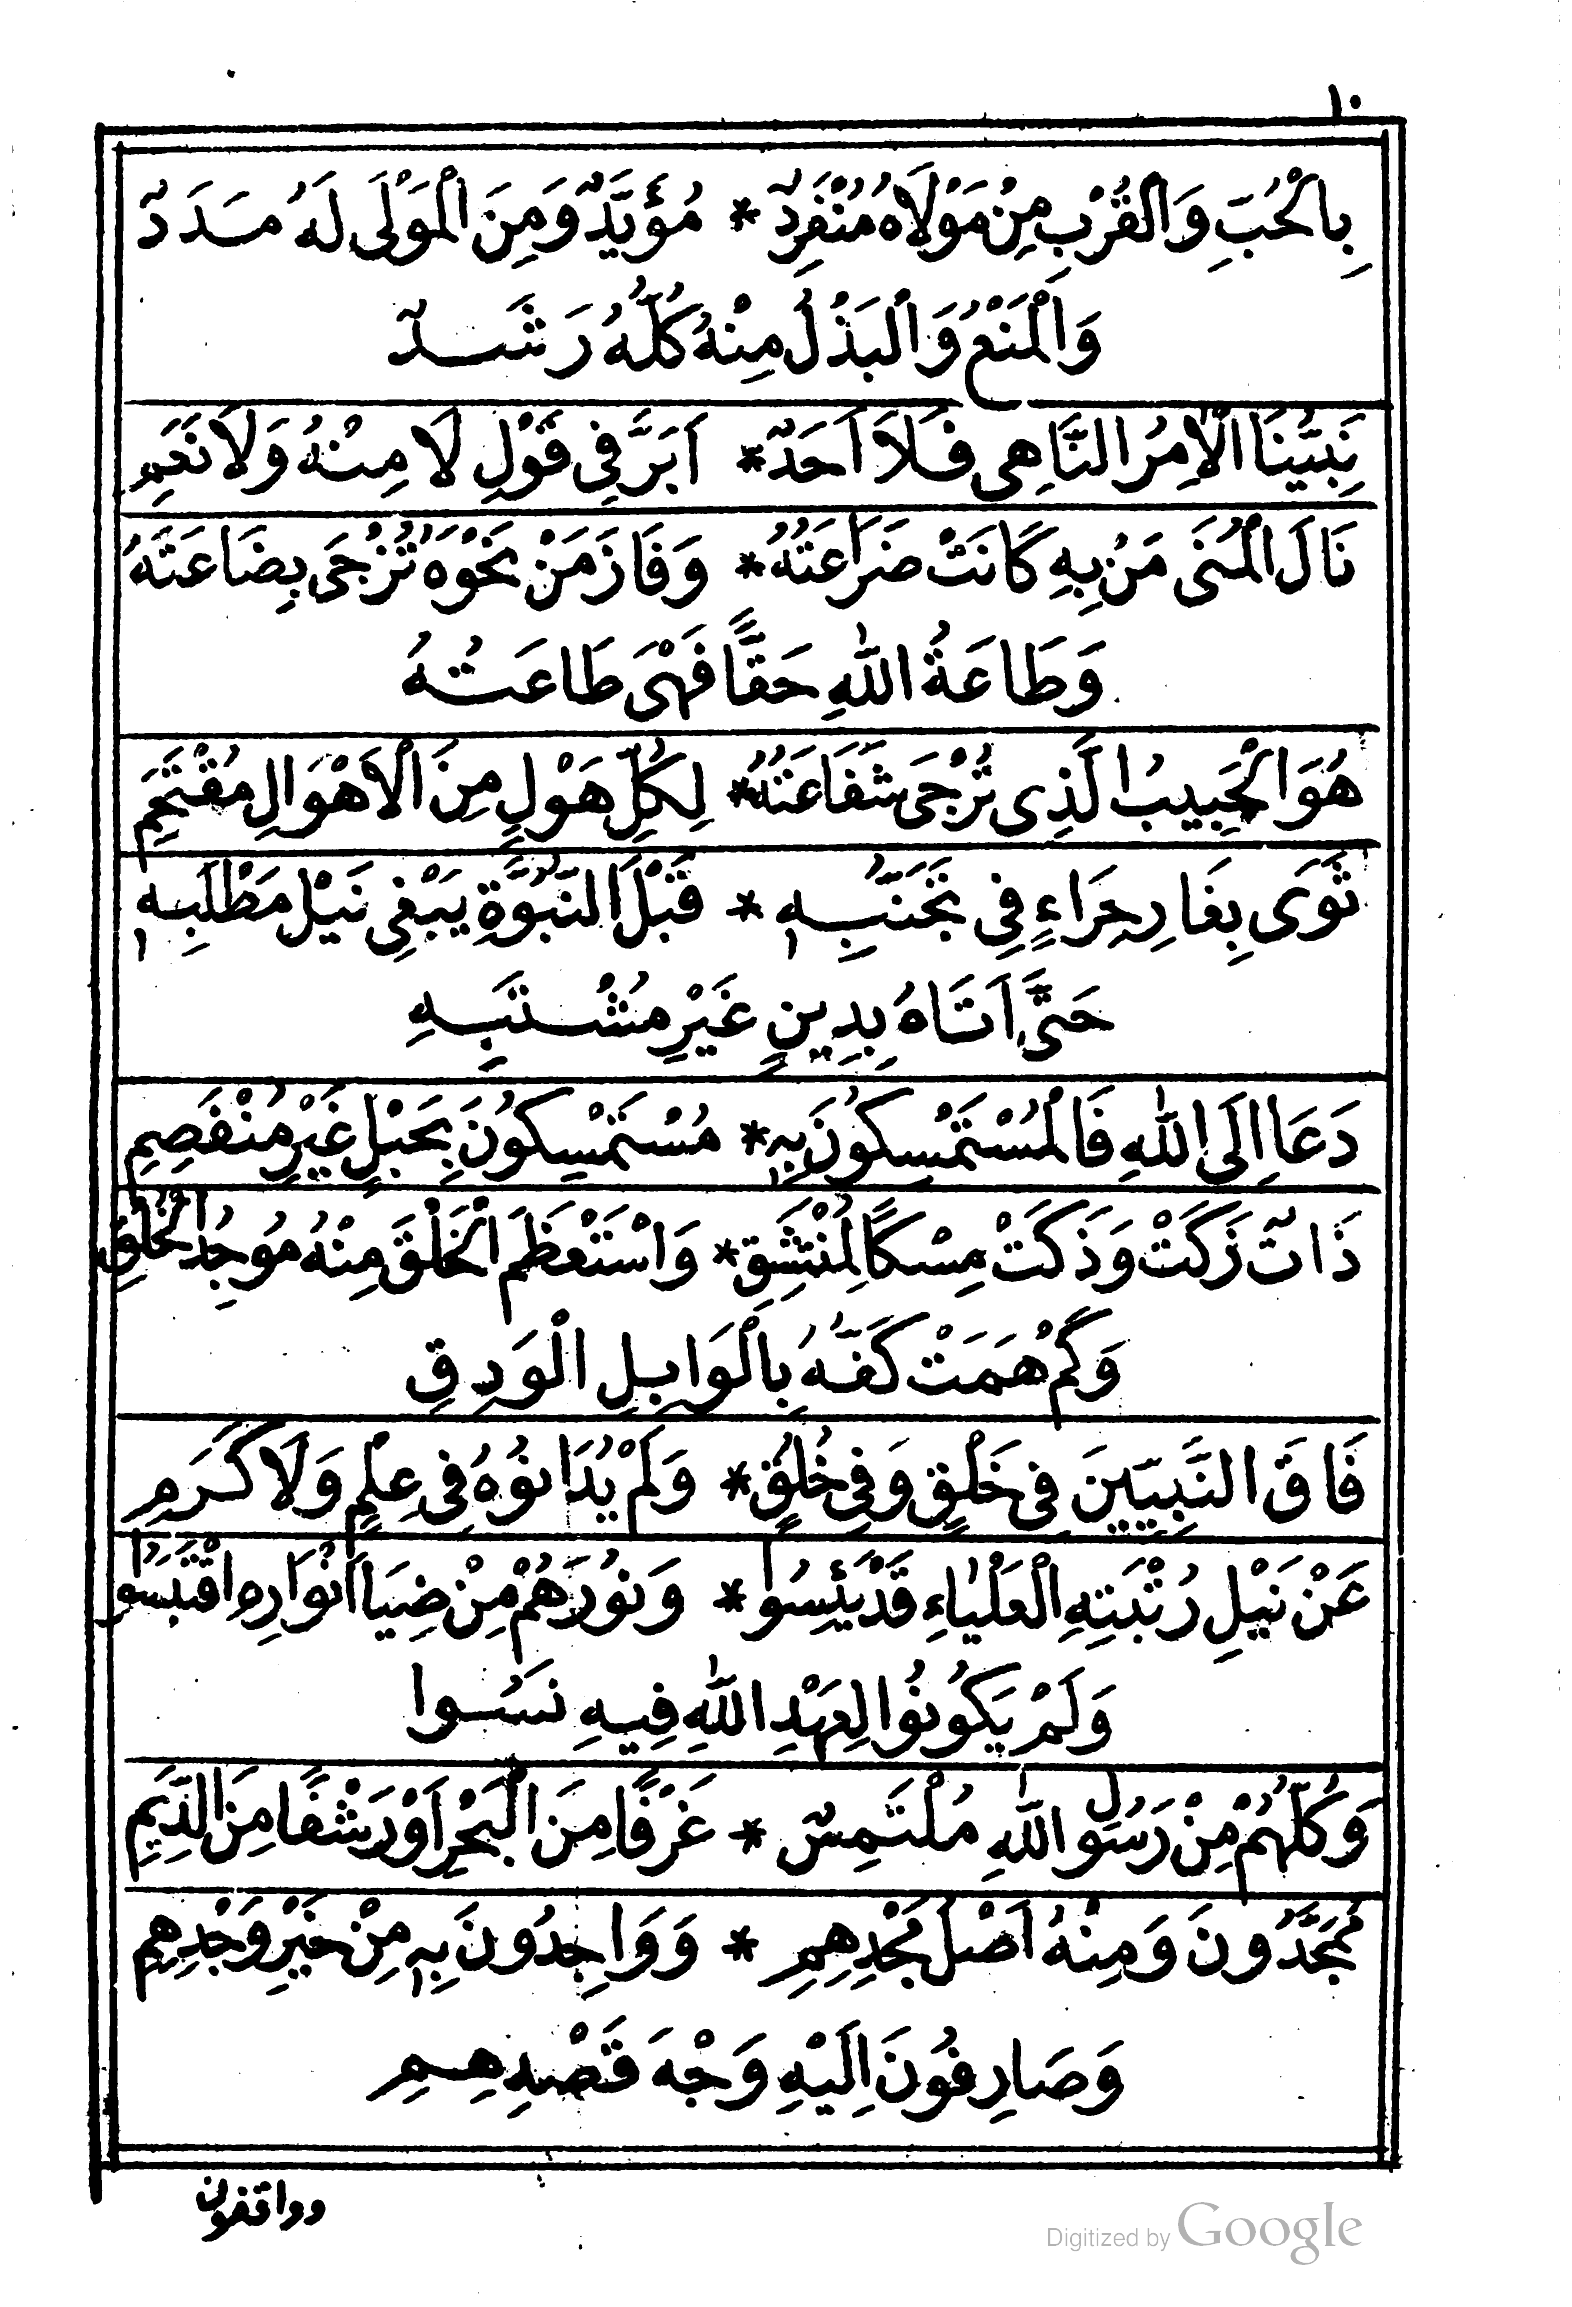 ١٠
بِالْحُبِّ وَالْقُرْبِ مِنْ مَوْلَاهُ مُنْفَرِدٌ * مُؤَيَّدٌ وَمِنَ الْمَوْلَى لَهُ مَدَدٌ
وَالْمَنْعُ وَالْبَذْلُ مِنْهُ كُلُّهُ رَشَدٌ
نَبِيُّنَا الْاٰمِرُ النَّاهِى فَلَا اَحَدٌ * اَبَرَّ فِى قَوْلِ لَا مِنْهُ وَلَا نَعَمِ
نَالَ الْمُنَى مَنْ بِهِ كَانَتْ ضَرَاعَتُهُ * وَفَازَ مَنْ نَحْوَهُ تُزْجَى بِضَاعَتُهُ
وَطَاعَةُ اللهِ حَقًّا فَهْىَ طَاعَتُهُ
هُوَ الْحَبِيبُ الَّذِى تُرْجَى شَفَاعَتُهُ * لِكُلِّ هَوْلٍ مِنَ الْاَهْوَالِ مُقْتَحِمِ
ثَوَى بِغَارِ حِرَاءٍ فِى تَجَنُّبِهِ * قَبْلَ النُّبُوَّةِ يَبْغِى نَيْلَ مَطْلَبِهِ
حَتَّى اَتَاهُ بِدِينٍ غَيْرِ مُشْتَبِهِ
دَعَا اِلَى اللهِ فَالْمُسْتَمْسِكُونَ بِهِ * مُسْتَمْسِكُونَ بِحَبْلٍ غَيْرِ مُنْفَصِمِ
ذَاتٌ زَكَتْ وَذَكَتْ مِسْكًا لِمُنْتَشِقِ * وَاسْتَعْظَمَ الْخَلْقَ مِنْهُ مُوجِدُ الْخُلُقِ
وَكَمْ هَمَتْ كَفُّهُ بِالْوَابِلِ الْوَدِقِ
فَاقَ النَّبِيِّينَ فِى خَلْقٍ وَفِى خُلُقٍ * وَلَمْ يُدَانُوهُ فِى عِلْمٍ وَلَا كَرَمِ
عَنْ نَيْلِ رُتْبَتِهِ الْعَلْيَاءِ قَدْ يَئِسُوا * وَنُورُهُمْ مِنْ ضِيَا اَنْوَارِهِ اقْتَبَسُوا
وَلَمْ يَكُونُوا لِعَهْدِ اللهِ فِيهِ نَسُوا
وَكُلُّهُمْ مِنْ رَسُولِ اللهِ مُلْتَمِسٌ * غَرْفًا مِنَ الْبَحْرِ اَوْ رَشْفًا مِنَ الدِّيَمِ
مُمَجَّدُونَ وَمِنْهُ اَصْلُ مَجْدِهِمِ * وَوَاجِدُونَ بِهِ مِنْ خَيْرِ وَجْدِهِمِ
وَصَارِفُونَ اِلَيْهِ وَجْهَ قَصْدِهِمِ
وواقفون
Digitized by Google